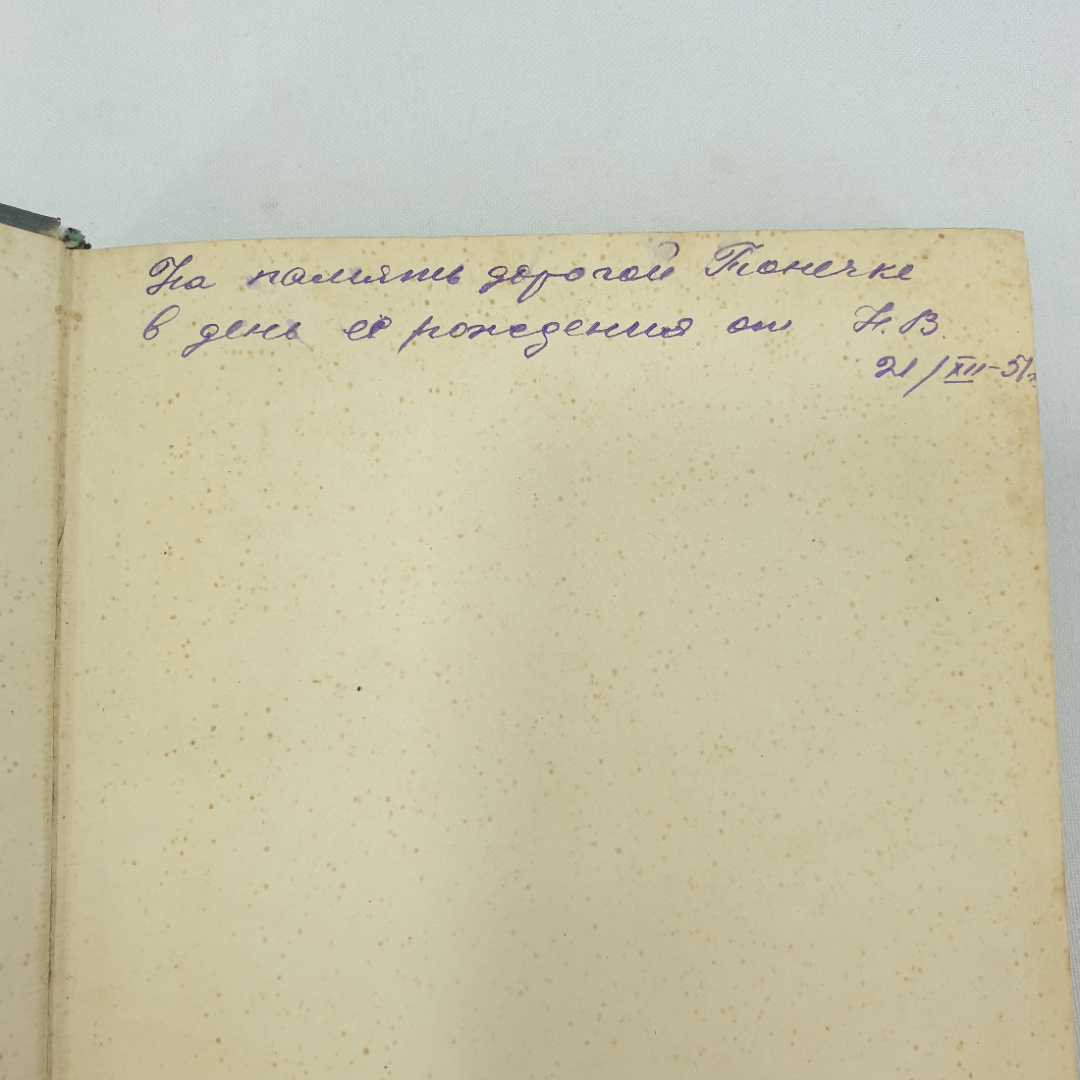 На память дорогой Тонечке
в день её рождения от Н. В.
21/XII-51г.